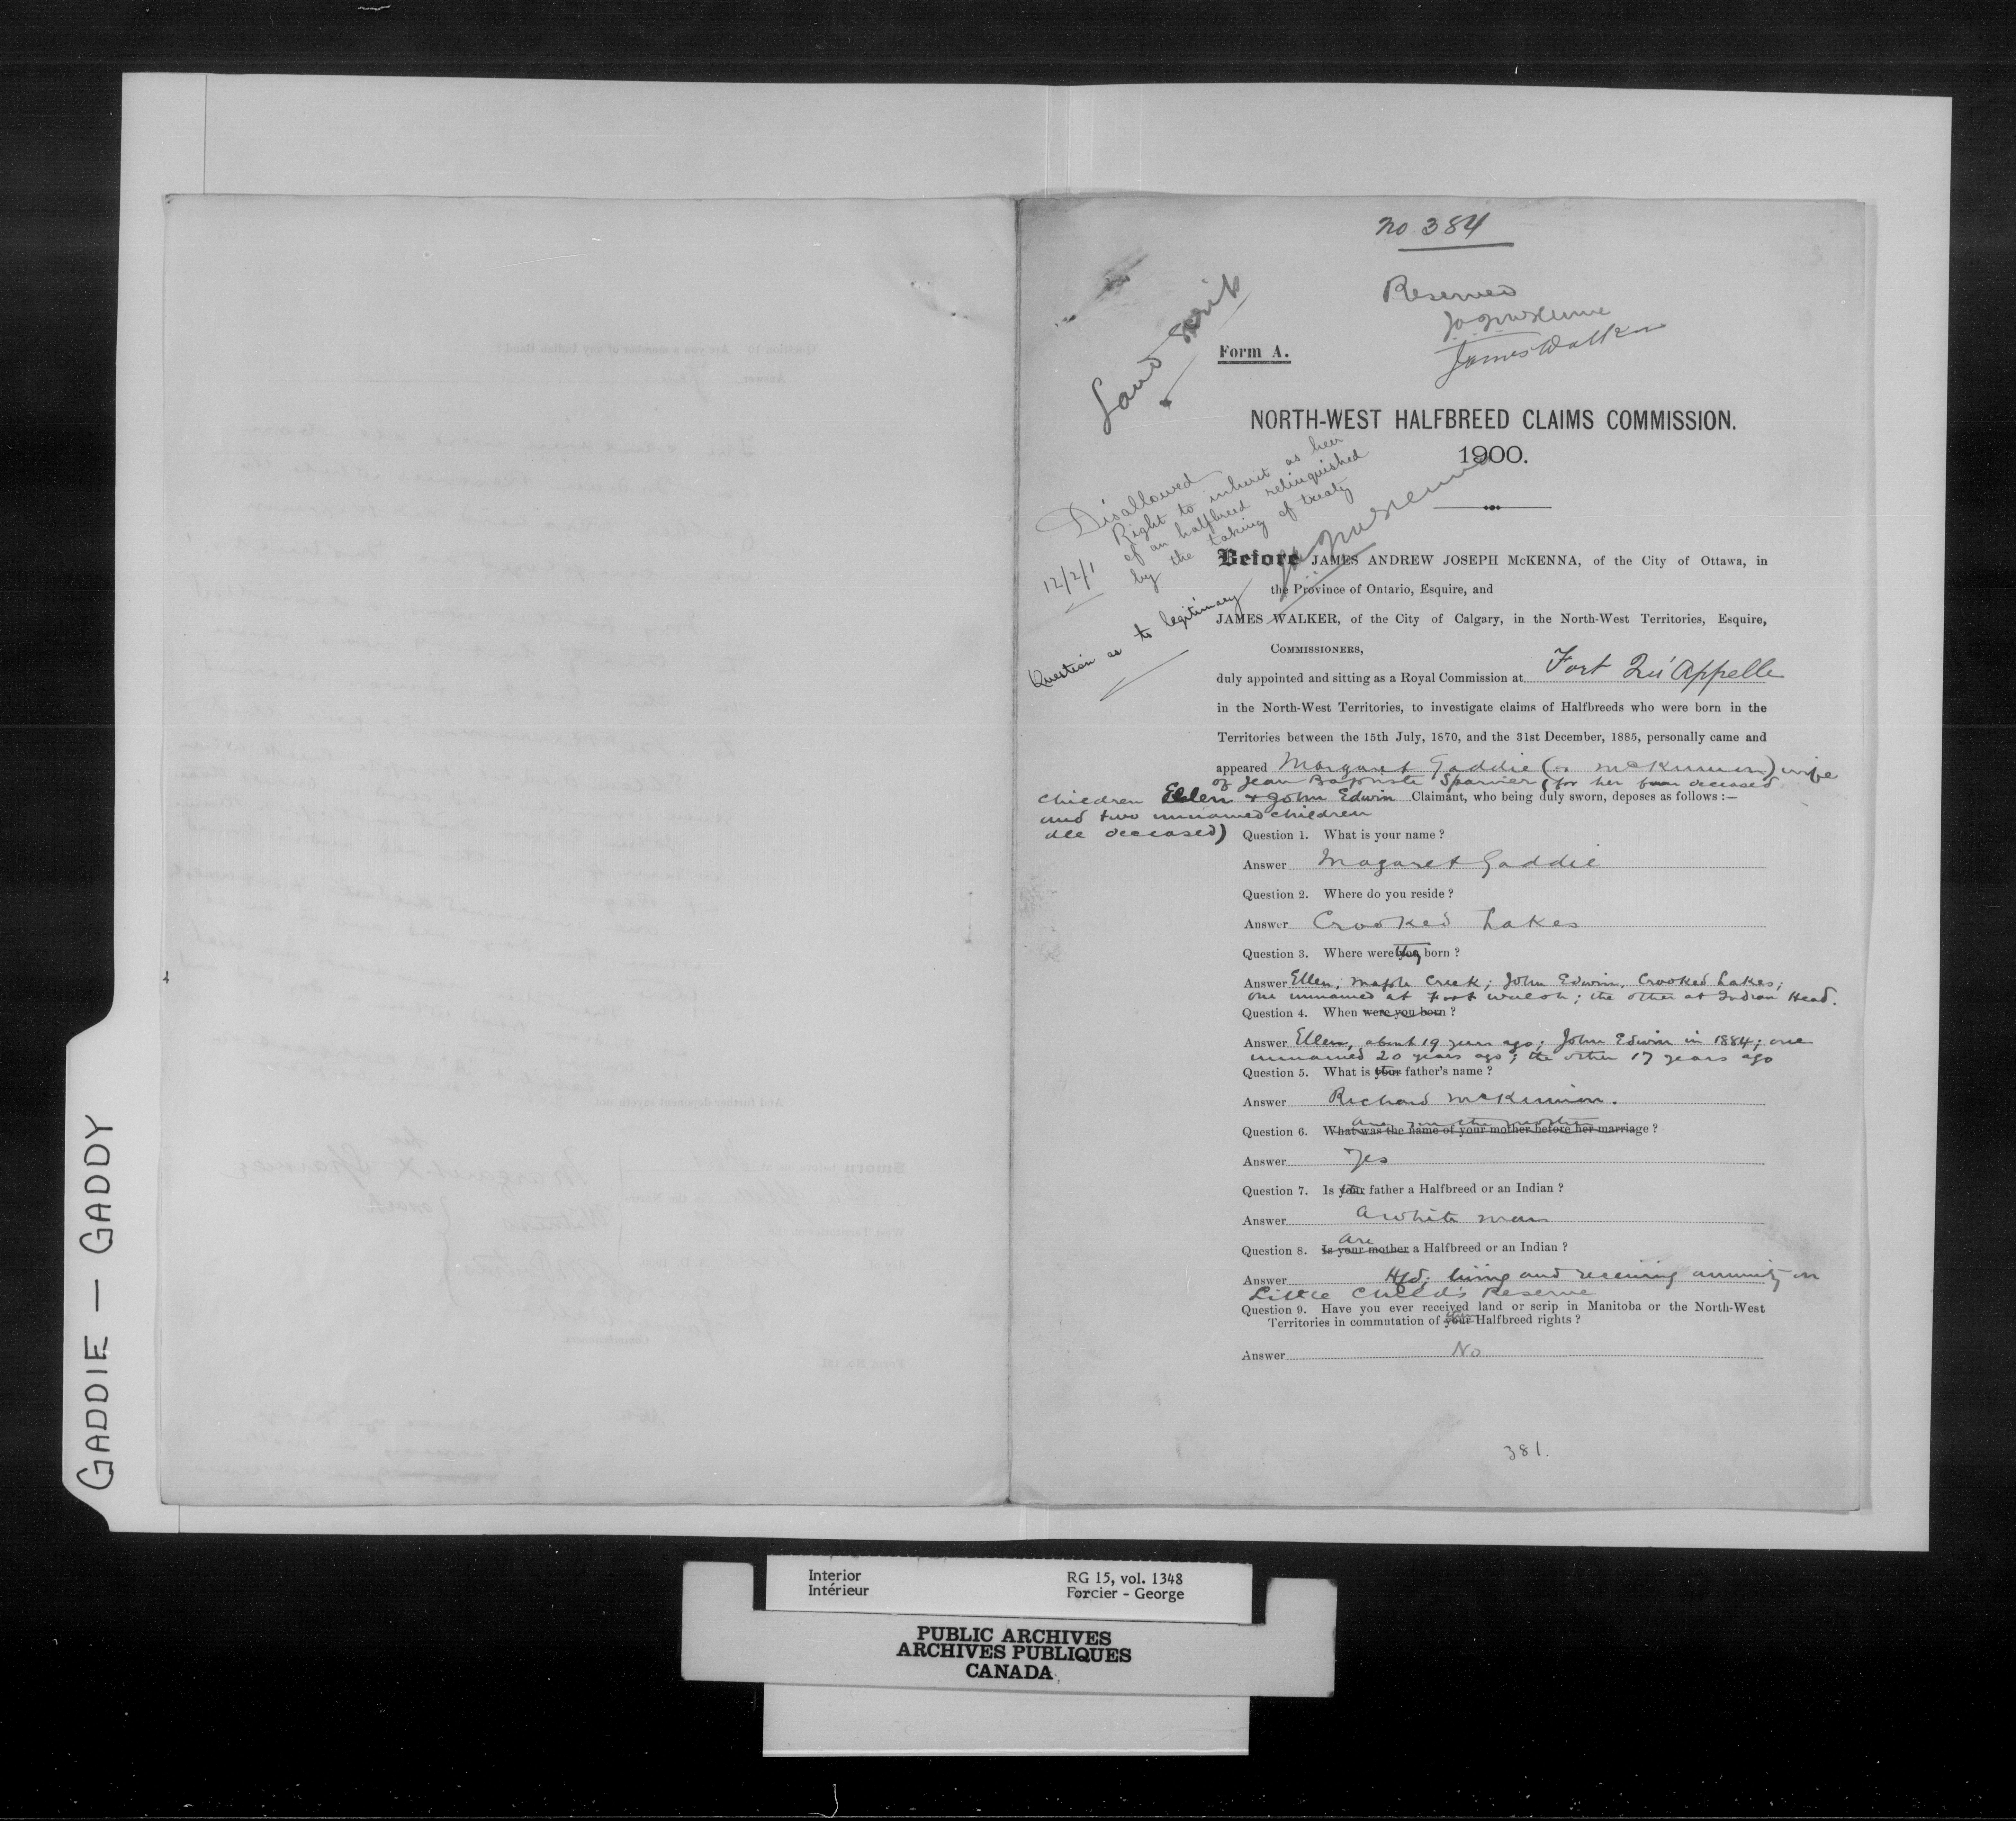 no 384
Reserved
James Walker
Land Scrip
Form A.
NORTH-WEST HALFBREED CLAIMS COMMISSION.
1900.
Disallowed
Right to inherit as heir
of an halfbreed relinquished
by the taking of treaty
12/2/1
Question as to legitimacy
Before JAMES ANDREW JOSEPH McKENNA, of the City of Ottawa, in
the Province of Ontario, Esquire, and
JAMES WALKER, of the City of Calgary, in the North-West Territories, Esquire,
COMMISSIONERS,
duly appointed and sitting as a Royal Commission at Fort Qu'Appelle
in the North-West Territories, to investigate claims of Halfbreeds who were born in the
Territories between the 15th July, 1870, and the 31st December, 1885, personally came and
appeared Margaret Gaddie (or McKinnon) wife
of Jean Baptiste Sparvier (for her four deceased
children Ellen & John Edwin Claimant, who being duly sworn, deposes as follows :—
and two unnamed children
all deceased)
Question 1. What is your name ?
Answer Magaret Gaddie
Question 2. Where do you reside ?
Answer Crooked Lakes
Question 3. Where were they born ?
Answer Ellen, Maple Creek; John Edwin, Crooked Lakes;
one unnamed at Fort Walsh; the other at Indian Head.
Question 4. When were you born ?
Answer Ellen, about 19 years ago; John Edwin in 1884; one
unnamed 20 years ago; the other 17 years ago
Question 5. What is your father's name ?
Answer Richard McKinnon.
are you the mother
Question 6. What was the name of your mother before her marriage ?
Answer Yes
Question 7. Is your father a Halfbreed or an Indian ?
Answer A white man
are
Question 8. Is your mother a Halfbreed or an Indian ?
Answer Hfd; living and receiving annuity on
Little Child's Reserve
Question 9. Have you ever received land or scrip in Manitoba or the North-West
Territories in commutation of your Halfbreed rights ?
Answer No
381.
GADDIE — GADDY
Interior
Intérieur
RG 15, vol. 1348
Forcier - George
PUBLIC ARCHIVES
ARCHIVES PUBLIQUES
CANADA